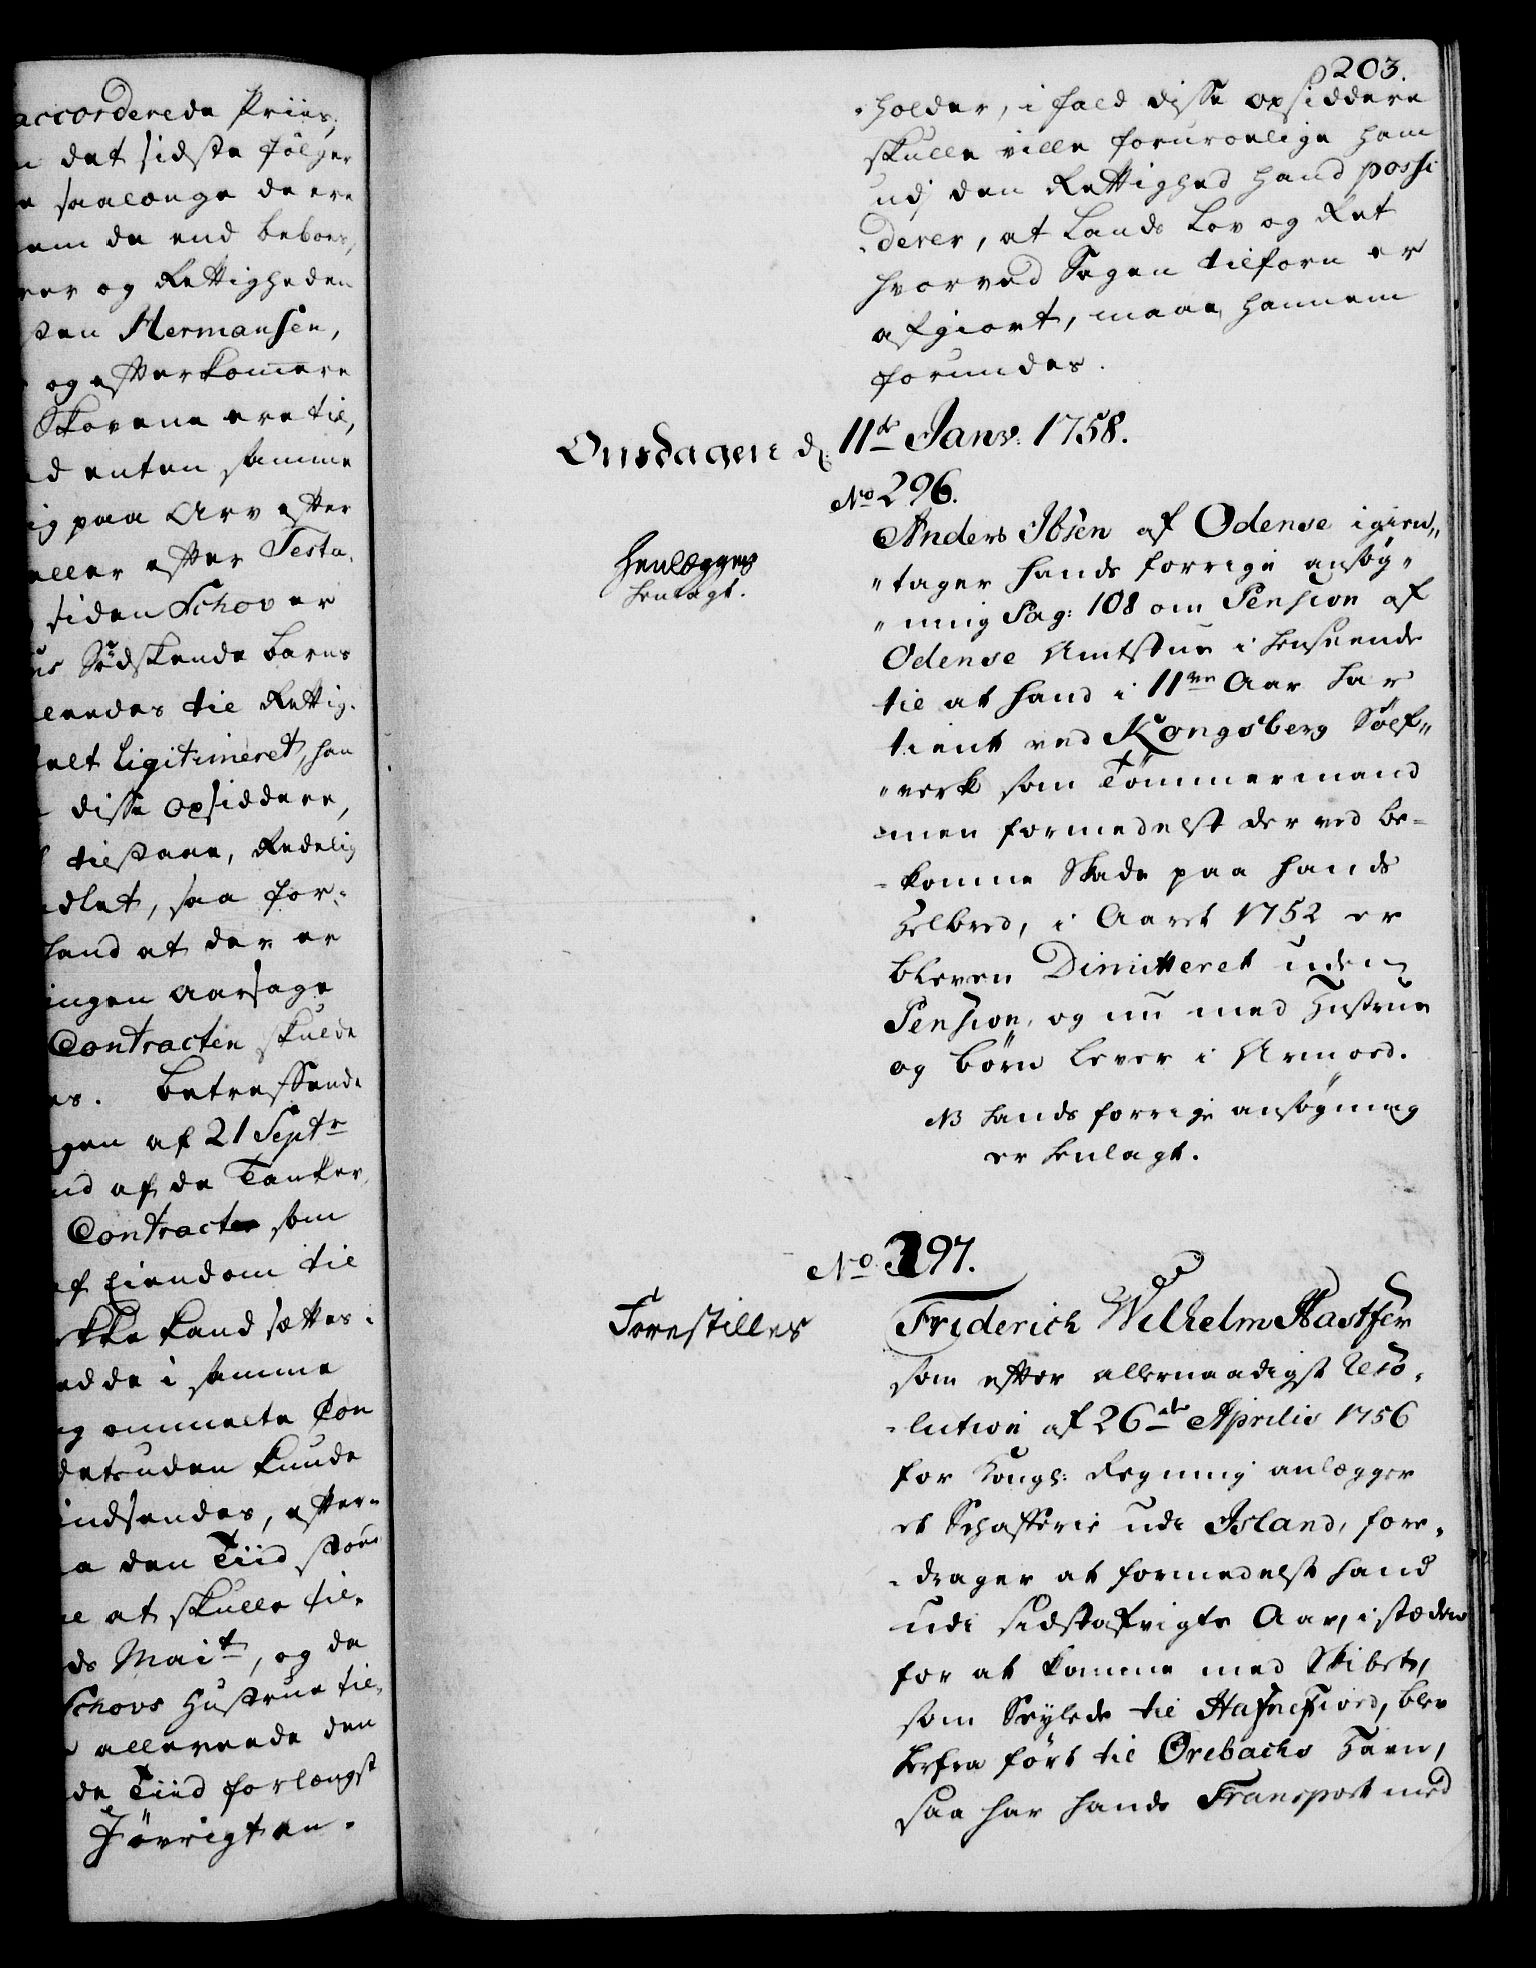 accorderede Priis,
det sidste følger
saalænge de ere
dem de end beboes,
og Rettigheden
Hermansen,
og efterkommere
Skovene ere til,
enten samme
paa Arv efter
eller efter Testa-
siden Schov er
Södskende Barns
til Rettig-
Ligitimeret, han
disse opsiddere,
tilstaae, Redelig
saa for-
at der er
ingen aarsage
Contracten skulde
betreffende
af 21 Septr
af de Tanker,
Contracter som
Eiendom til
ikke kand settes i
de i samme
ommelte Con
desuden kunde
indsendes, efter-
den Tiid
at skulle til-
Mait, og da
Schovs Hustrue til-
allereede den
de Tiid forlængst
J övrigt an-
203.
-holder, i fald disse opsiddere
skulle ville foruroelige ham
udj den Rettighed hand possi
-derer, at Lands Lov og Ret
hvorved Sagen tilforn er
afgiort, maae hannem
forundes.
Onsdagen d: 11te Janv: 1758.
No 296.
Henlægges
henlagt.
Anders Ibsen af Odense igien„
„tager hands forrige ansøg„
„ning Pag: 108 om Pension af
Odense Amtstue i henseende
til at hand i 11ve Aar har
tient ved Kongsberg Sölf„
„verk som Tömmermand
men formedelst der ved be-
-komne Skade paa hands
Helbred, i Aaret 1752 er
bleven Dimitteret uden
Pension, og nu med Hustrue
og börn lever i Armoed.
NB hands forrige ansögning
er henlagt.
No 297.
Forestilles
Friderich Wilhelm Hastfer
som efter allernaadigst Reso-
-lution af 26de Aprilis 1756
for Kongl: Regning anlægger
et Schæfferie udi Island, fore-
-drager at formedelst hand
udi sidstafvigte Aar, i stæden
for at komme med Skibet,
som Seylede til Hafnefiord, blev
herfra fört til Örebachs Havn,
saa har hands Transport med